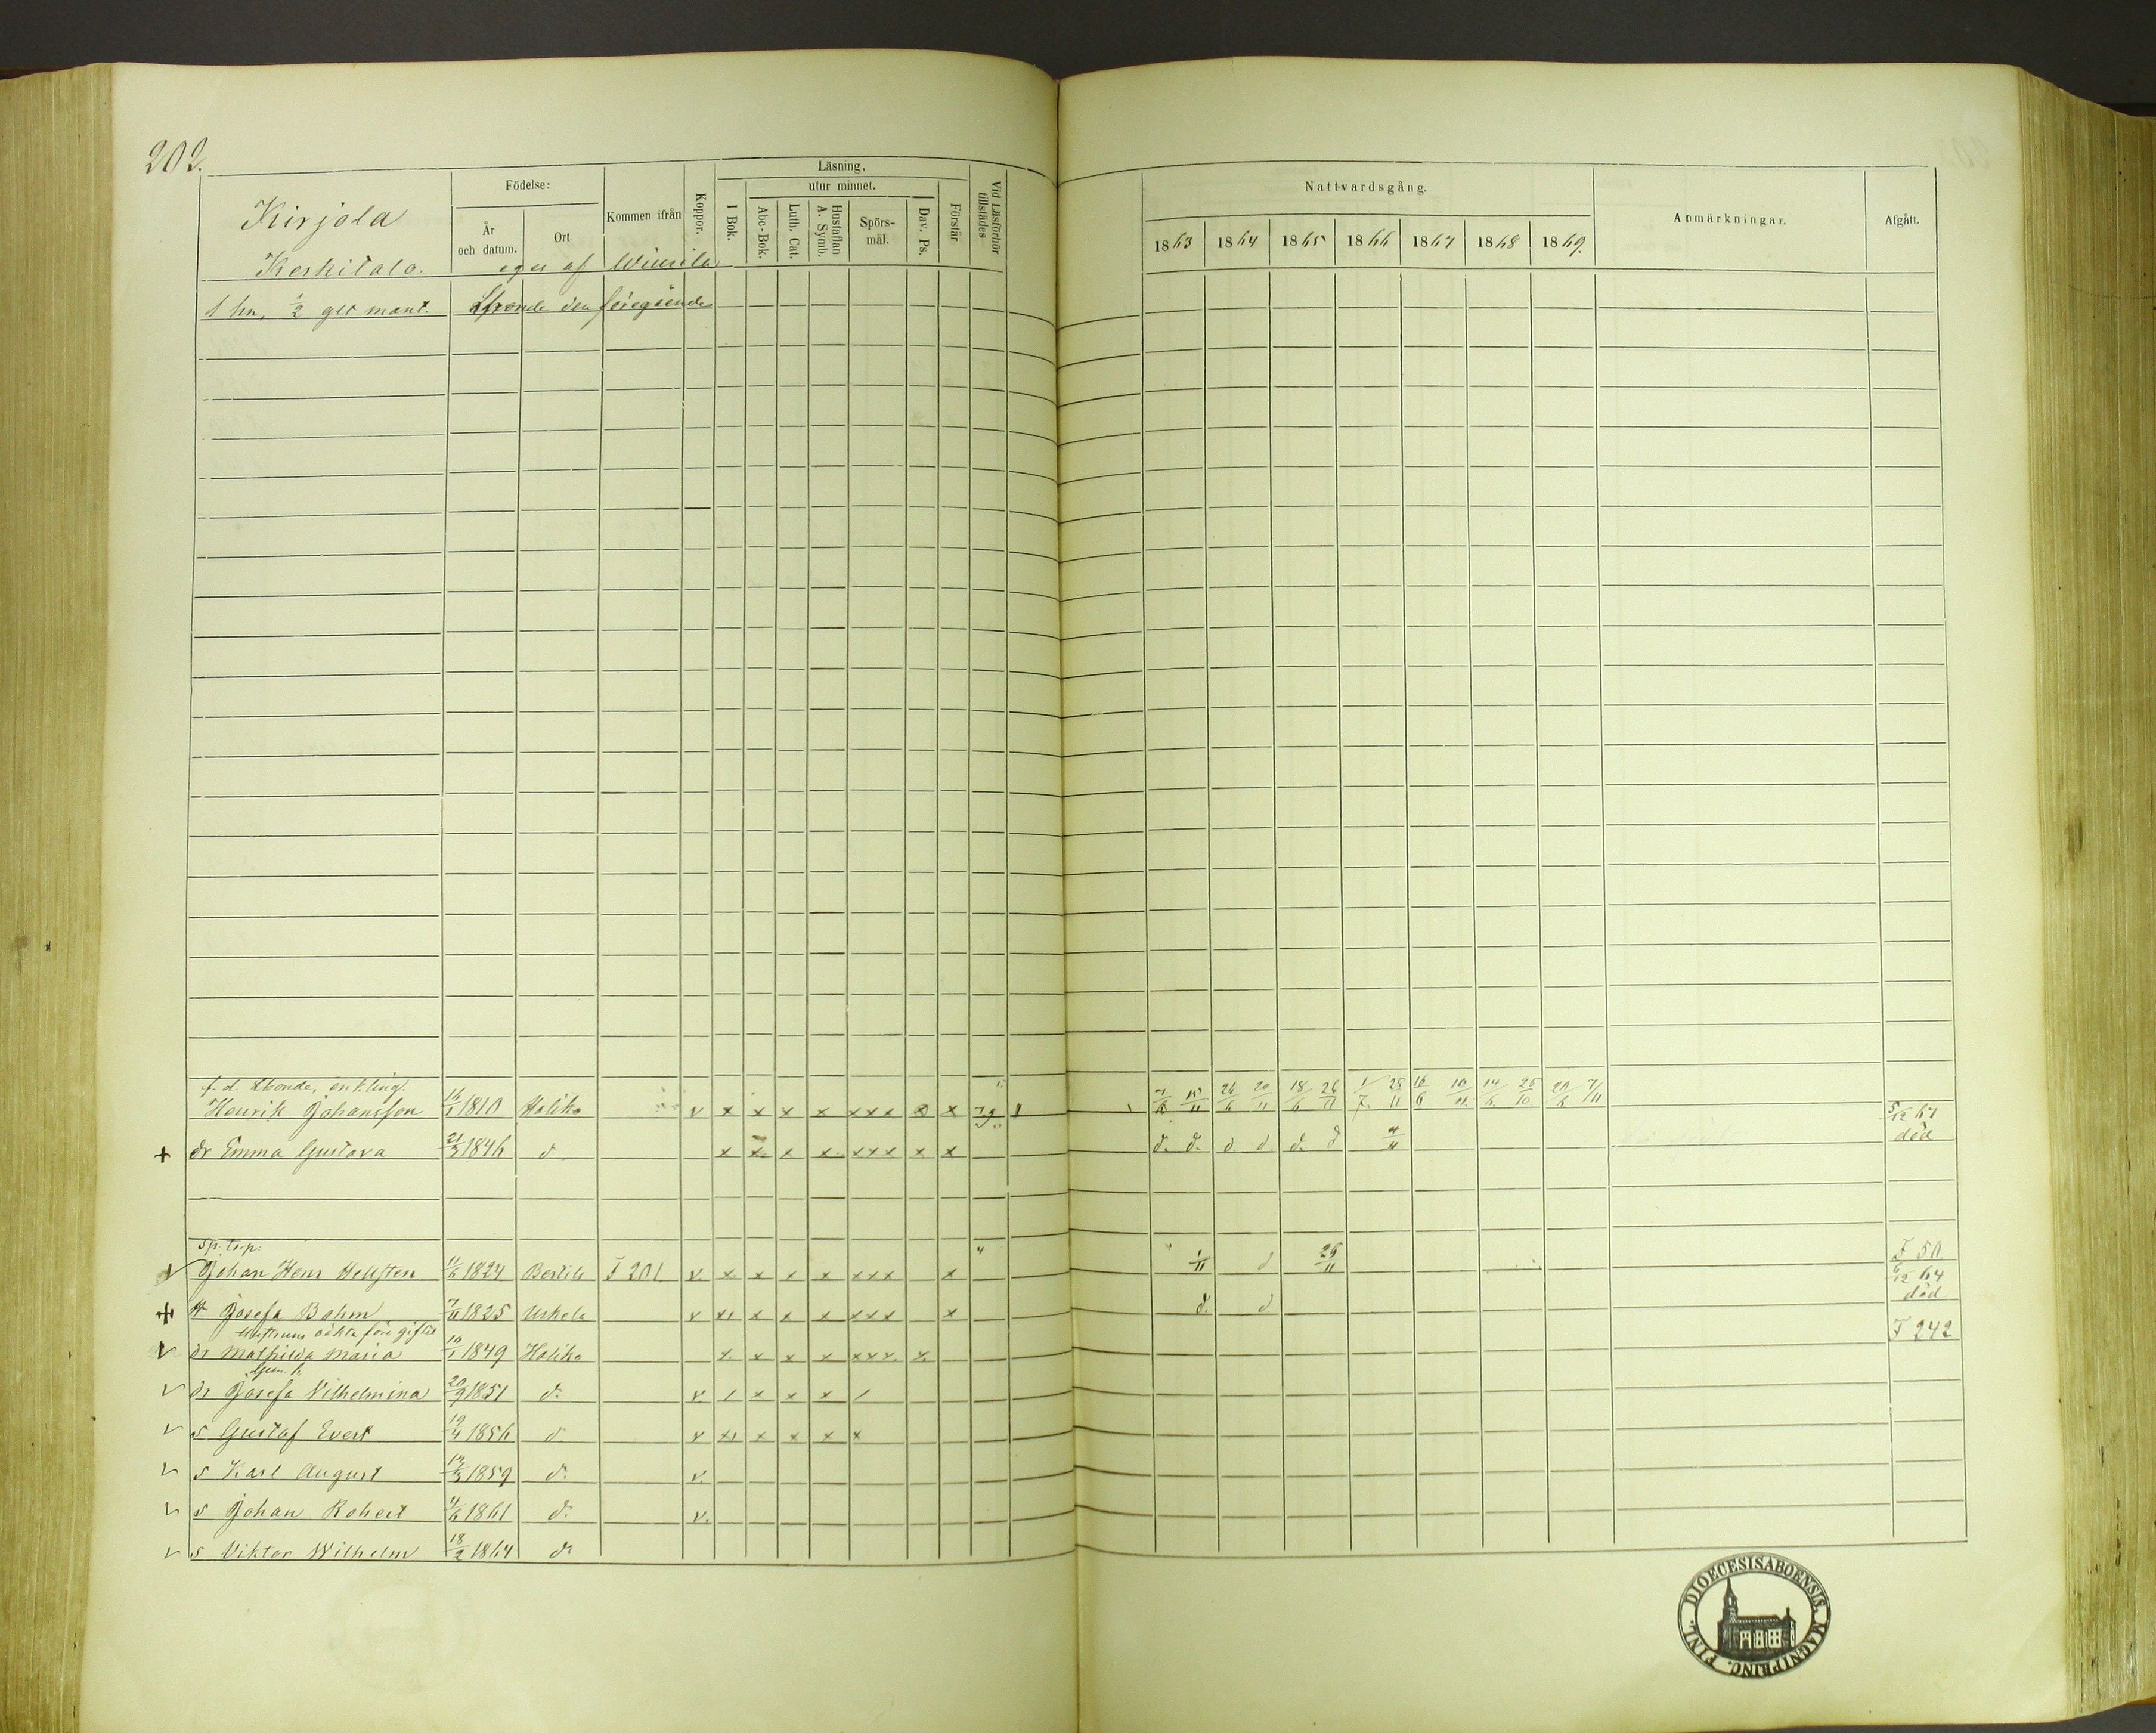 202.
Kirjola
Keskitalo.
1 hn, 1/2 glt mant.
eges af Wiurila
den föregående
Födelse:
År och datum.
Ort
Kommen ifrån
Koppor.
Läsning,
I Bok.
utur minnet.
Abc-Bok.
Luth. Cat.
Hustaflan A. Symb.
Spörs-mål.
Dav. Ps.
Förstår
Vid Läsförhör tillstädes
Nattvardsgång.
1863 1864 1865 1866 1867 1868 1869.
Anmärkningar.
Afgått.
f. d. Lbonde, enkling.
Henrik Johansson 1810 Haliko v x x x x xxx x x 7/6 15/11 26/6 20/11 18/6 26/11 1/7. 25/11 16/6 14/6 25/10 20/6 7/11
+ dr Emma Gustava 21/3 1846 d x x x x xxx x x d. d. d. d. d. d 4/11 5/12 67 död
sp. torp:
v Johan Henr Hellsten 11/6 1824 Bertils F 201 v. x x x x xxx x 1/11 d 25/11 F 50
+ H Josefa Bohm 7/11 1825 Uskela v x x x x xxx x d. d 6/12 64 död
Hustruns oäkta före giftet
v dr Mathilda Maria 1849 Haliko x x x x xxx. x. F 242
Gem. b.
v dr Josefa Vilhelmina 20/9 1851 d: v. / x x x /
v s Gustaf Evert 19/4 1856 d v x x x x x
v s Karl August 1859 d. v.
v s Johan Robert 4/6 1861 d. v.
v s Viktor Wilhelm 18/2 1864 d:
DIOECESIS ABOENSIS. MAGNI PRINC. FINL.